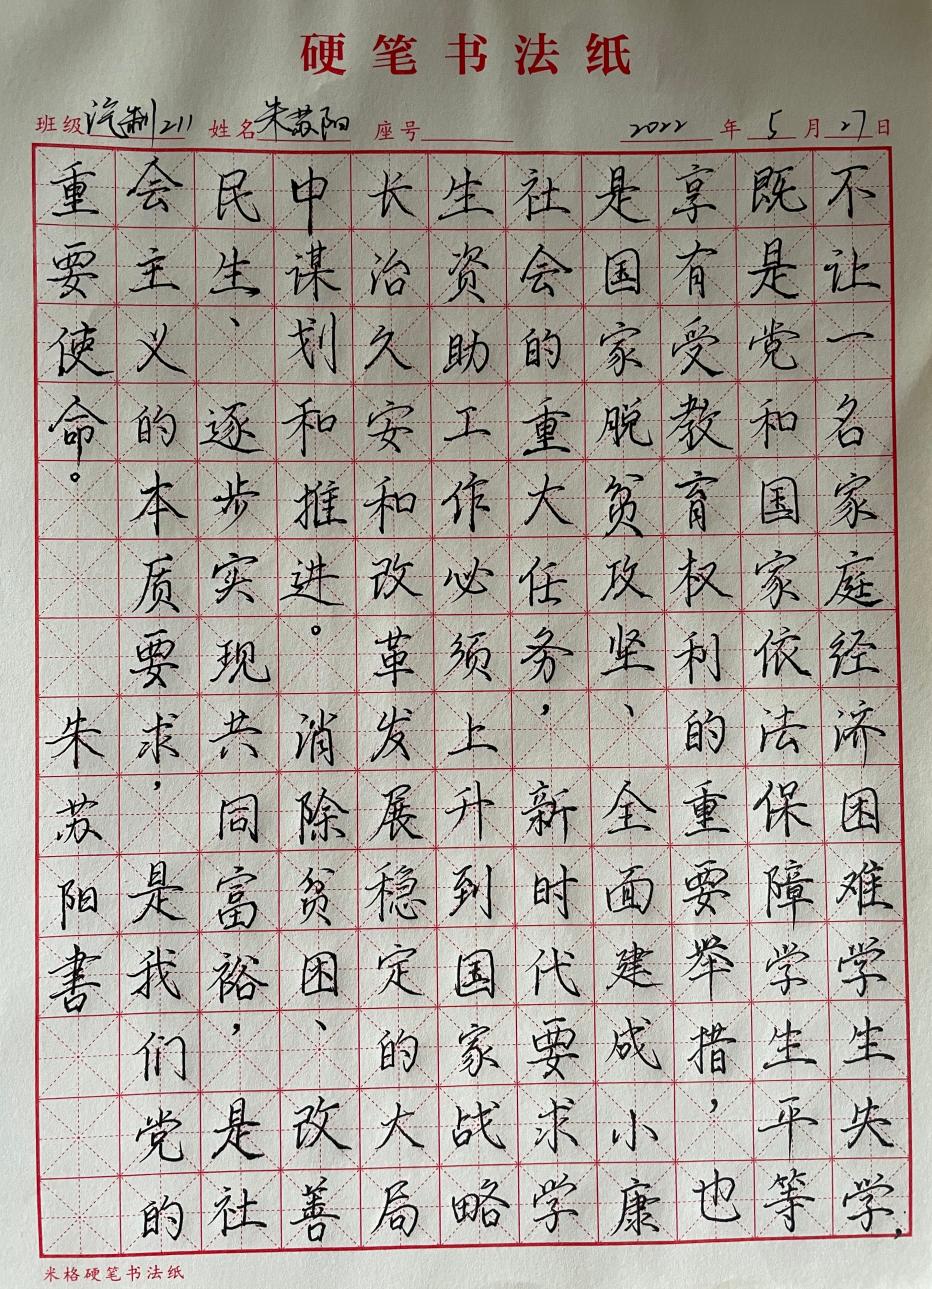 硬笔书法纸
班级汽制211 姓名朱苏阳 座号 2022年5月27日
不让一名家庭经济困难学生失学，
既是党和国家依法保障学生平等
享有受教育权利的重要举措，也
是国家脱贫攻坚、全面建成小康
社会的重大任务，新时代要求学
生资助工作必须上升到国家战略
长治久安和改革发展稳定的大局
中谋划和推进。消除贫困、改善
民生、逐步实现共同富裕，是社
会主义的本质要求，是我们党的
重要使命。朱苏阳書
米格硬笔书法纸